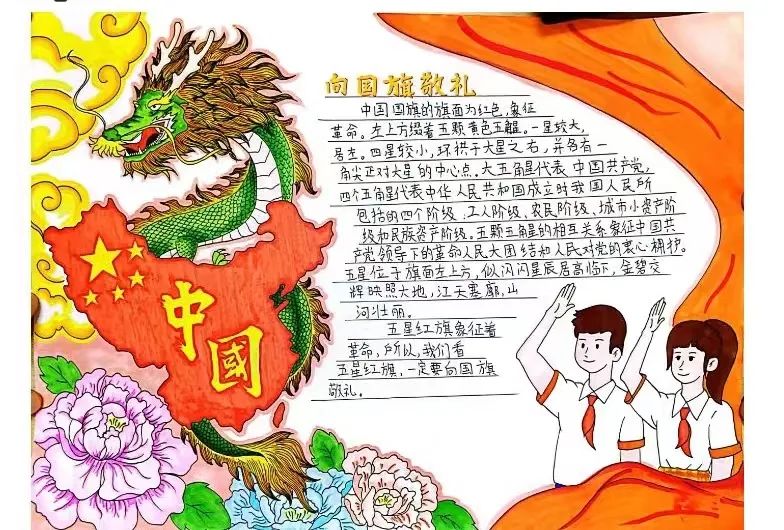 向国旗敬礼
中国国旗的旗面为红色，象征
革命。左上方缀着五颗黄色五角星。一星较大，
居左。四星较小，环拱于大星之右，并各有一
角尖正对大星的中心点。大五角星代表中国共产党，
四个五角星代表中华人民共和国成立时我国人民所
包括的四个阶级、工人阶级、农民阶级、城市小资产阶
级和民族资产阶级。五颗五角星的相互关系象征中国共
产党领导下的革命人民大团结和人民对党的衷心拥护。
五星位于旗面左上方，似闪闪星辰居高临下，金碧交
辉映照大地，江天寥廓，山
河壮丽。
五星红旗象征着
革命，所以，我们看
五星红旗，一定要向国旗
敬礼。
中
國